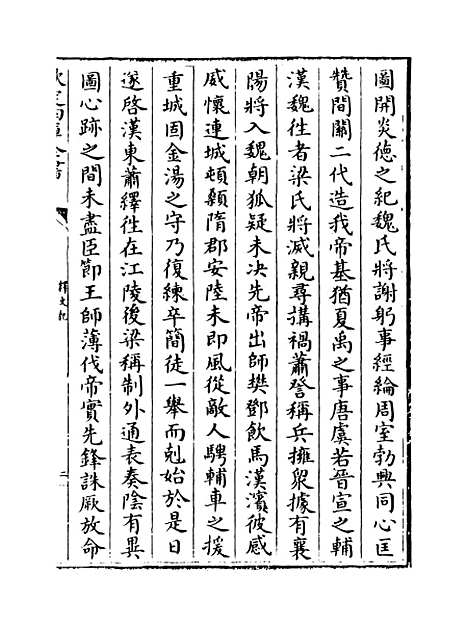 圖開炎徳之紀魏氏將謝躬事經綸周室勃興同心匡
贊間關二代造我帝基猶夏禹之事唐虞若晉宣之輔
漢魏徃者梁氏將滅親尋搆禍蕭詧稱兵擁衆據有襄
陽將入魏朝狐疑未決先帝出師樊鄧飲馬漢濱彼感
威懷連城頓顙隋郡安陸未即風從敵人騁輔車之援
重城固金湯之守乃復練卒簡徒一舉而剋始於是日
遂啓漢東蕭繹徃在江陵後梁稱制外通表奏陰有異
圖心跡之間未盡臣節王師薄伐帝實先鋒誅厥放命
欽定四庫全書
釋文紀